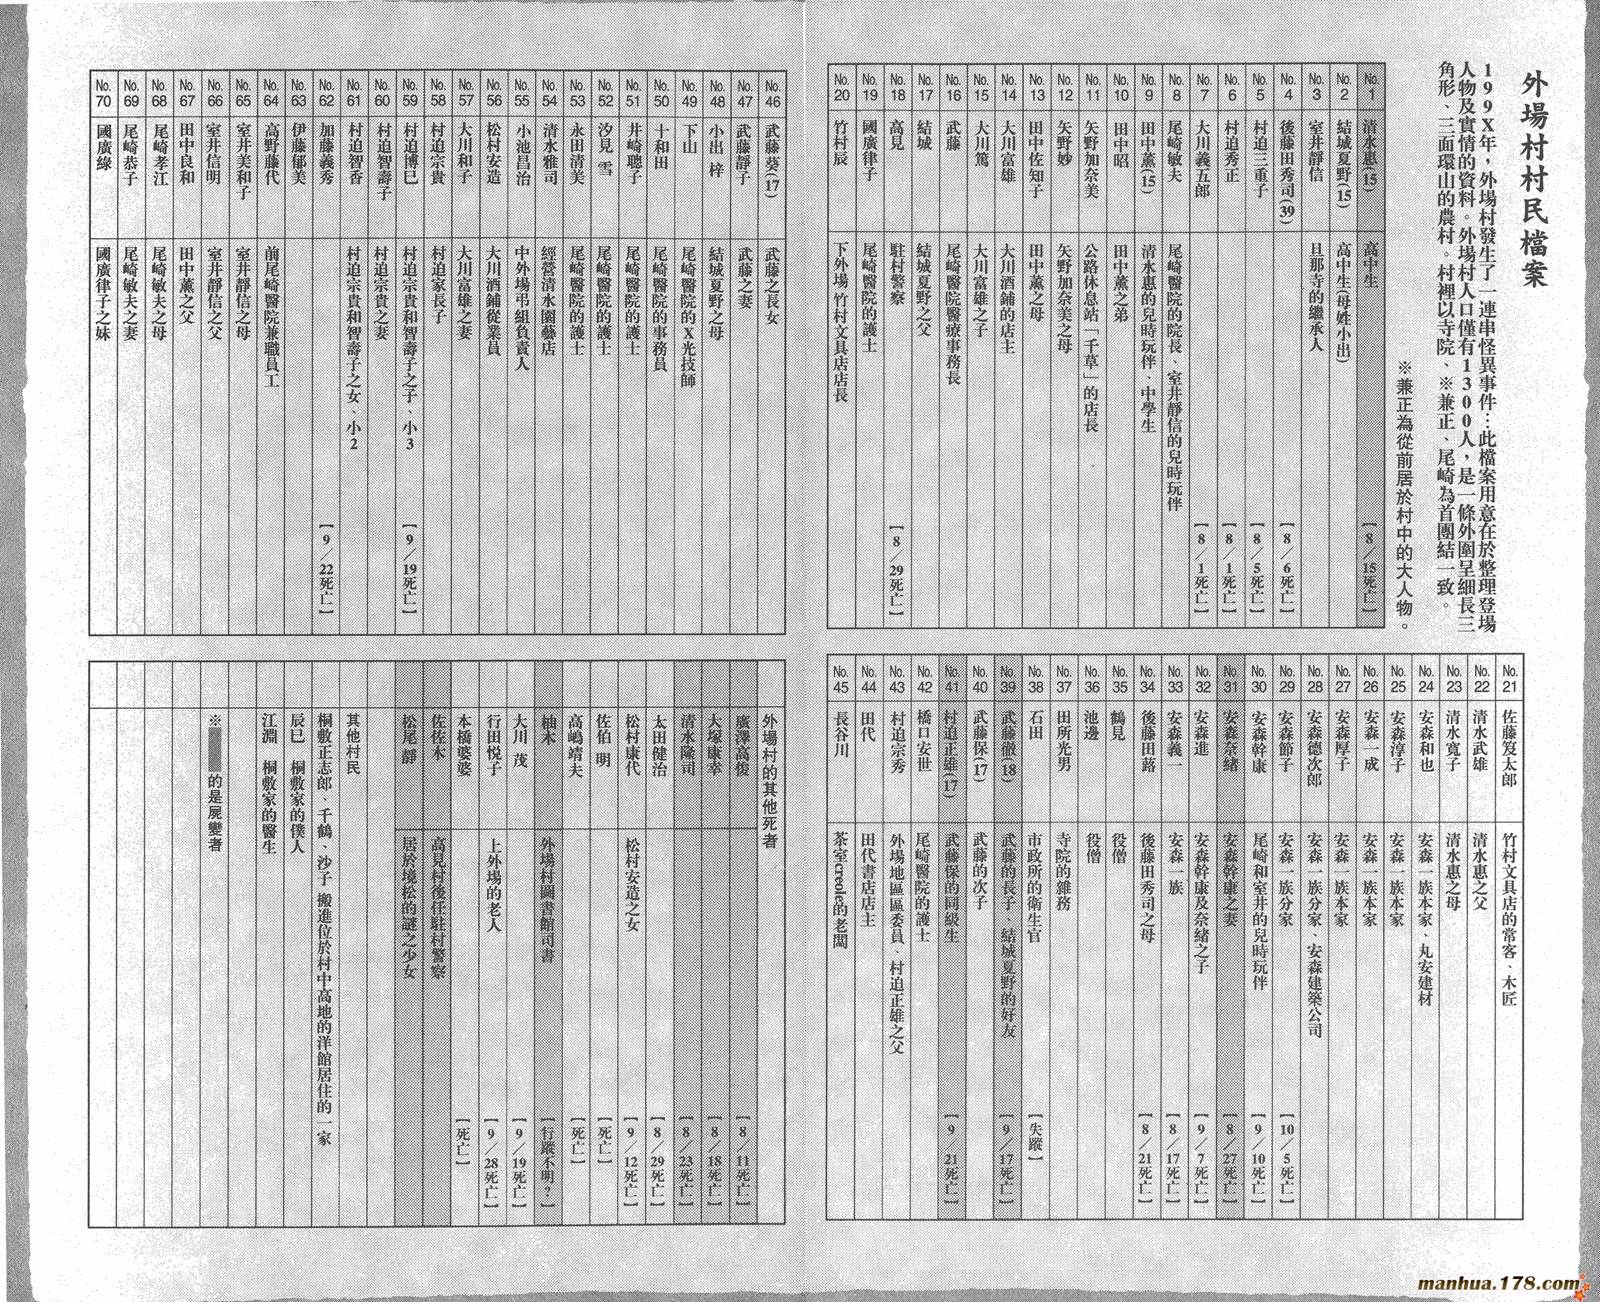 外場村村民檔案
199X年,外場村發生了一連串怪異事件…此檔案用意在於整理登場
人物及實情的資料。外場村人口僅有1300人,是一條外圍呈細長三
角形、三面環山的農村。村裡以寺院、※兼正、尾崎為首團結一致。
※兼正為從前居於村中的大人物。
No.1 清水惠(15) 高中生 【8/15死亡】
No.2 結城夏野(15) 高中生(母姓小出)
No.3 室井靜信 旦那寺的繼承人
No.4 後藤田秀司(39) 【8/6死亡】
No.5 村迫三重子 【8/5死亡】
No.6 村迫秀正 【8/1死亡】
No.7 大川義五郎 【8/1死亡】
No.8 尾崎敏夫 尾崎醫院的院長、室井靜信的兒時玩伴
No.9 田中薰(15) 清水惠的兒時玩伴、中學生
No.10 田中昭 田中薰之弟
No.11 矢野加奈美 公路休息站「千草」的店長
No.12 矢野妙 矢野加奈美之母
No.13 田中佐知子 田中薰之母
No.14 大川富雄 大川酒鋪的店主
No.15 大川篤 大川富雄之子
No.16 武藤 尾崎醫院醫療事務長
No.17 結城 結城夏野之父
No.18 高見 駐村警察 【8/29死亡】
No.19 國廣律子 尾崎醫院的護士
No.20 竹村辰 下外場 竹村文具店店長
No.21 佐藤笈太郎 竹村文具店的常客、木匠
No.22 清水武雄 清水惠之父
No.23 清水寬子 清水惠之母
No.24 安森和也 安森一族本家、丸安建材
No.25 安森淳子 安森一族本家
No.26 安森一成 安森一族本家
No.27 安森厚子 安森一族本家
No.28 安森德次郎 安森一族分家、安森建築公司
No.29 安森節子 安森一族分家 【10/5死亡】
No.30 安森幹康 尾崎和室井的兒時玩伴 【9/10死亡】
No.31 安森奈緒 安森幹康之妻 【8/27死亡】
No.32 安森進 安森幹康及奈緒之子 【9/7死亡】
No.33 安森義一 安森一族 【8/17死亡】
No.34 後藤田蕗 後藤田秀司之母 【8/21死亡】
No.35 鶴見 役僧
No.36 池邊 役僧
No.37 田所光男 寺院的雜務
No.38 石田 市政所的衛生官 【失蹤】
No.39 武藤徹(18) 武藤的長子、結城夏野的好友 【9/17死亡】
No.40 武藤保(17) 武藤的次子
No.41 村迫正雄(17) 武藤保的同級生 【9/21死亡】
No.42 橋口安世 尾崎醫院的護士
No.43 村迫宗秀 外場地區區委員、村迫正雄之父
No.44 田代 田代書店店主
No.45 長谷川 茶室creole的老闆
No.46 武藤葵(17) 武藤之長女
No.47 武藤靜子 武藤之妻
No.48 小出 梓 結城夏野之母
No.49 下山 尾崎醫院的X光技師
No.50 十和田 尾崎醫院的事務員
No.51 井崎聰子 尾崎醫院的護士
No.52 汐見 雪 尾崎醫院的護士
No.53 永田清美 尾崎醫院的護士
No.54 清水雅司 經營清水園藝店
No.55 小池昌治 中外場弔組負責人
No.56 松村安造 大川酒鋪從業員
No.57 大川和子 大川富雄之妻
No.58 村迫宗貴 村迫家長子
No.59 村迫博巳 村迫宗貴和智壽子之子、小3 【9/19死亡】
No.60 村迫智壽子 村迫宗貴之妻
No.61 村迫智香 村迫宗貴和智壽子之女、小2
No.62 加藤義秀 【9/22死亡】
No.63 伊藤郁美
No.64 高野藤代 前尾崎醫院兼職員工
No.65 室井美和子 室井靜信之母
No.66 室井信明 室井靜信之父
No.67 田中良和 田中薰之父
No.68 尾崎孝江 尾崎敏夫之母
No.69 尾崎恭子 尾崎敏夫之妻
No.70 國廣綠 國廣律子之妹
外場村的其他死者
廣澤高俊 【8/11死亡】
大塚康幸 【8/18死亡】
清水隆司 【8/23死亡】
太田健治 【8/29死亡】
松村康代 松村安造之女 【9/12死亡】
佐伯 明 【死亡】
高嶋靖夫 【死亡】
柚木 外場村圖書館司書 【行蹤不明?】
大川 茂 【9/19死亡】
行田悅子 上外場的老人 【9/28死亡】
本橋婆婆 【死亡】
佐佐木 高見村後任駐村警察
松尾 靜 居於境松的謎之少女
其他村民
桐敷正志郎、千鶴、沙子 搬進位於村中高地的洋館居住的一家
辰巳 桐敷家的僕人
江淵 桐敷家的醫生
※ 的是屍變者
manhua.178.com